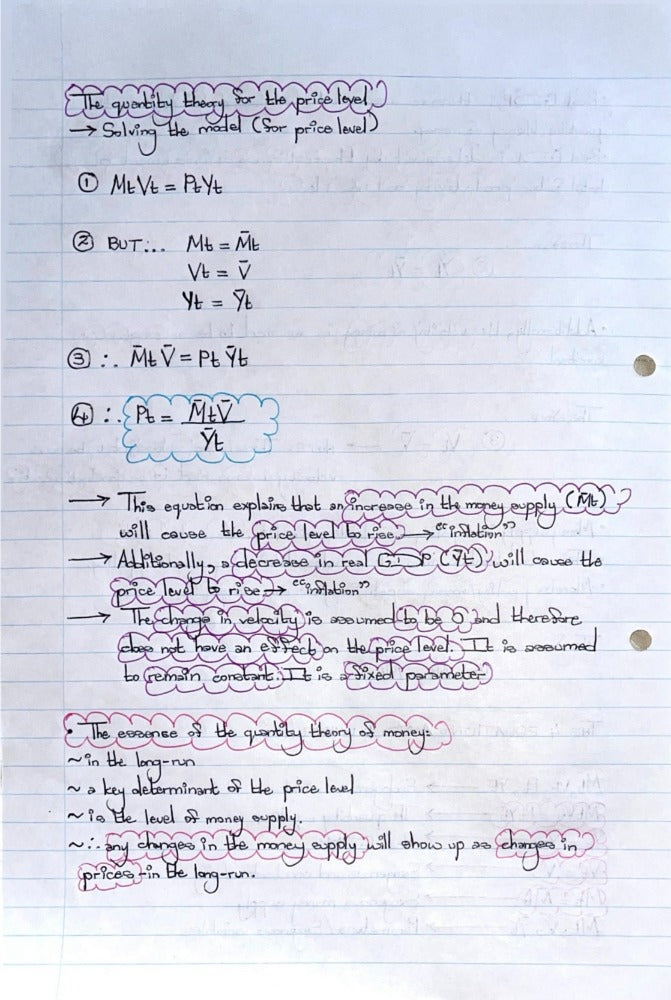 The quantity theory for the price level
→ Solving the model (for price level)
① MtVt = PtYt
② BUT... Mt = M̄t
Vt = V̄
Yt = Ȳt
③ ∴ M̄t V̄ = Pt Ȳt
④ ∴ Pt = M̄t V̄
Ȳt
→ This equation explains that an increase in the money supply (M̄t)
will cause the price level to rise → "inflation"
→ Additionally, a decrease in real GDP (Ȳt) will cause the
price level to rise → "inflation"
→ The change in velocity is assumed to be 0 and therefore
does not have an effect on the price level. It is assumed
to remain constant. It is a fixed parameter
• The essense of the quantity theory of money:
~ in the long-run
~ a key determinant of the price level
~ is the level of money supply.
~ ∴ any changes in the money supply will show up as changes in
prices - in the long-run.